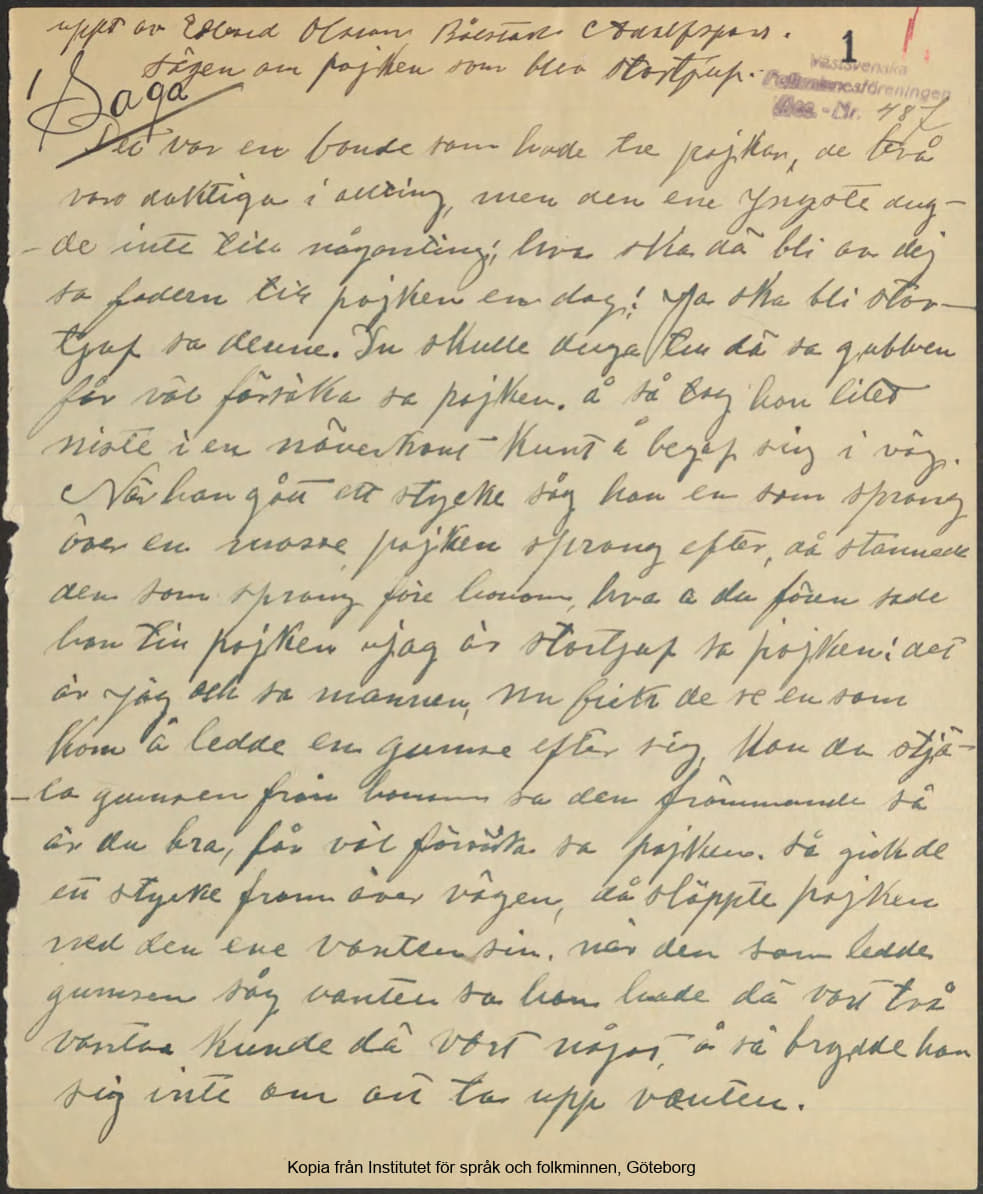 uppt av Edvard Olsson Bålstad Adolfsfors.
Sägen om pojken som blev stortjup.
1
1
Västsvenska
Folkminnesföreningen
Acc.-Nr. 487
Saga
Det var en bonde som hade tre pojkar, de två
varo duktiga i allting, men den ene Yngste dug-
-de inte till någonting; hva ska dä bli av dig
sa fadern till pojken en dag! Ja ska bli stor-
tjuf sa denne. Du skulle duga till dä sa gubben
får väl försöka sa pojken. å så tog han litet
niste i en näverkont Kunt å begaf sig i väg.
När han gått ett stycke såg han en som sprang
över en mosse, pojken sprang efter, då stannade
den som sprang före honom, hva ä du fören sade
han till pojken jag är stortjuf sa pojken; det
är jag och sa mannen, nu fick de se en som
kom å ledde en gumse efter sig, Kan du stjä-
-la gumsen från honom sa den främmande så
är du bra, får väl försöka sa pojken. så gick de
ett stycke fram över vägen, då släppte pojken
ned den ene vanten sin. när den som ledde
gumsen såg vanten sa han hade dä vart två
vantar kunde dä vart något, å så brydde han
sig inte om att ta upp vanten.
Kopia från Institutet för språk och folkminnen, Göteborg